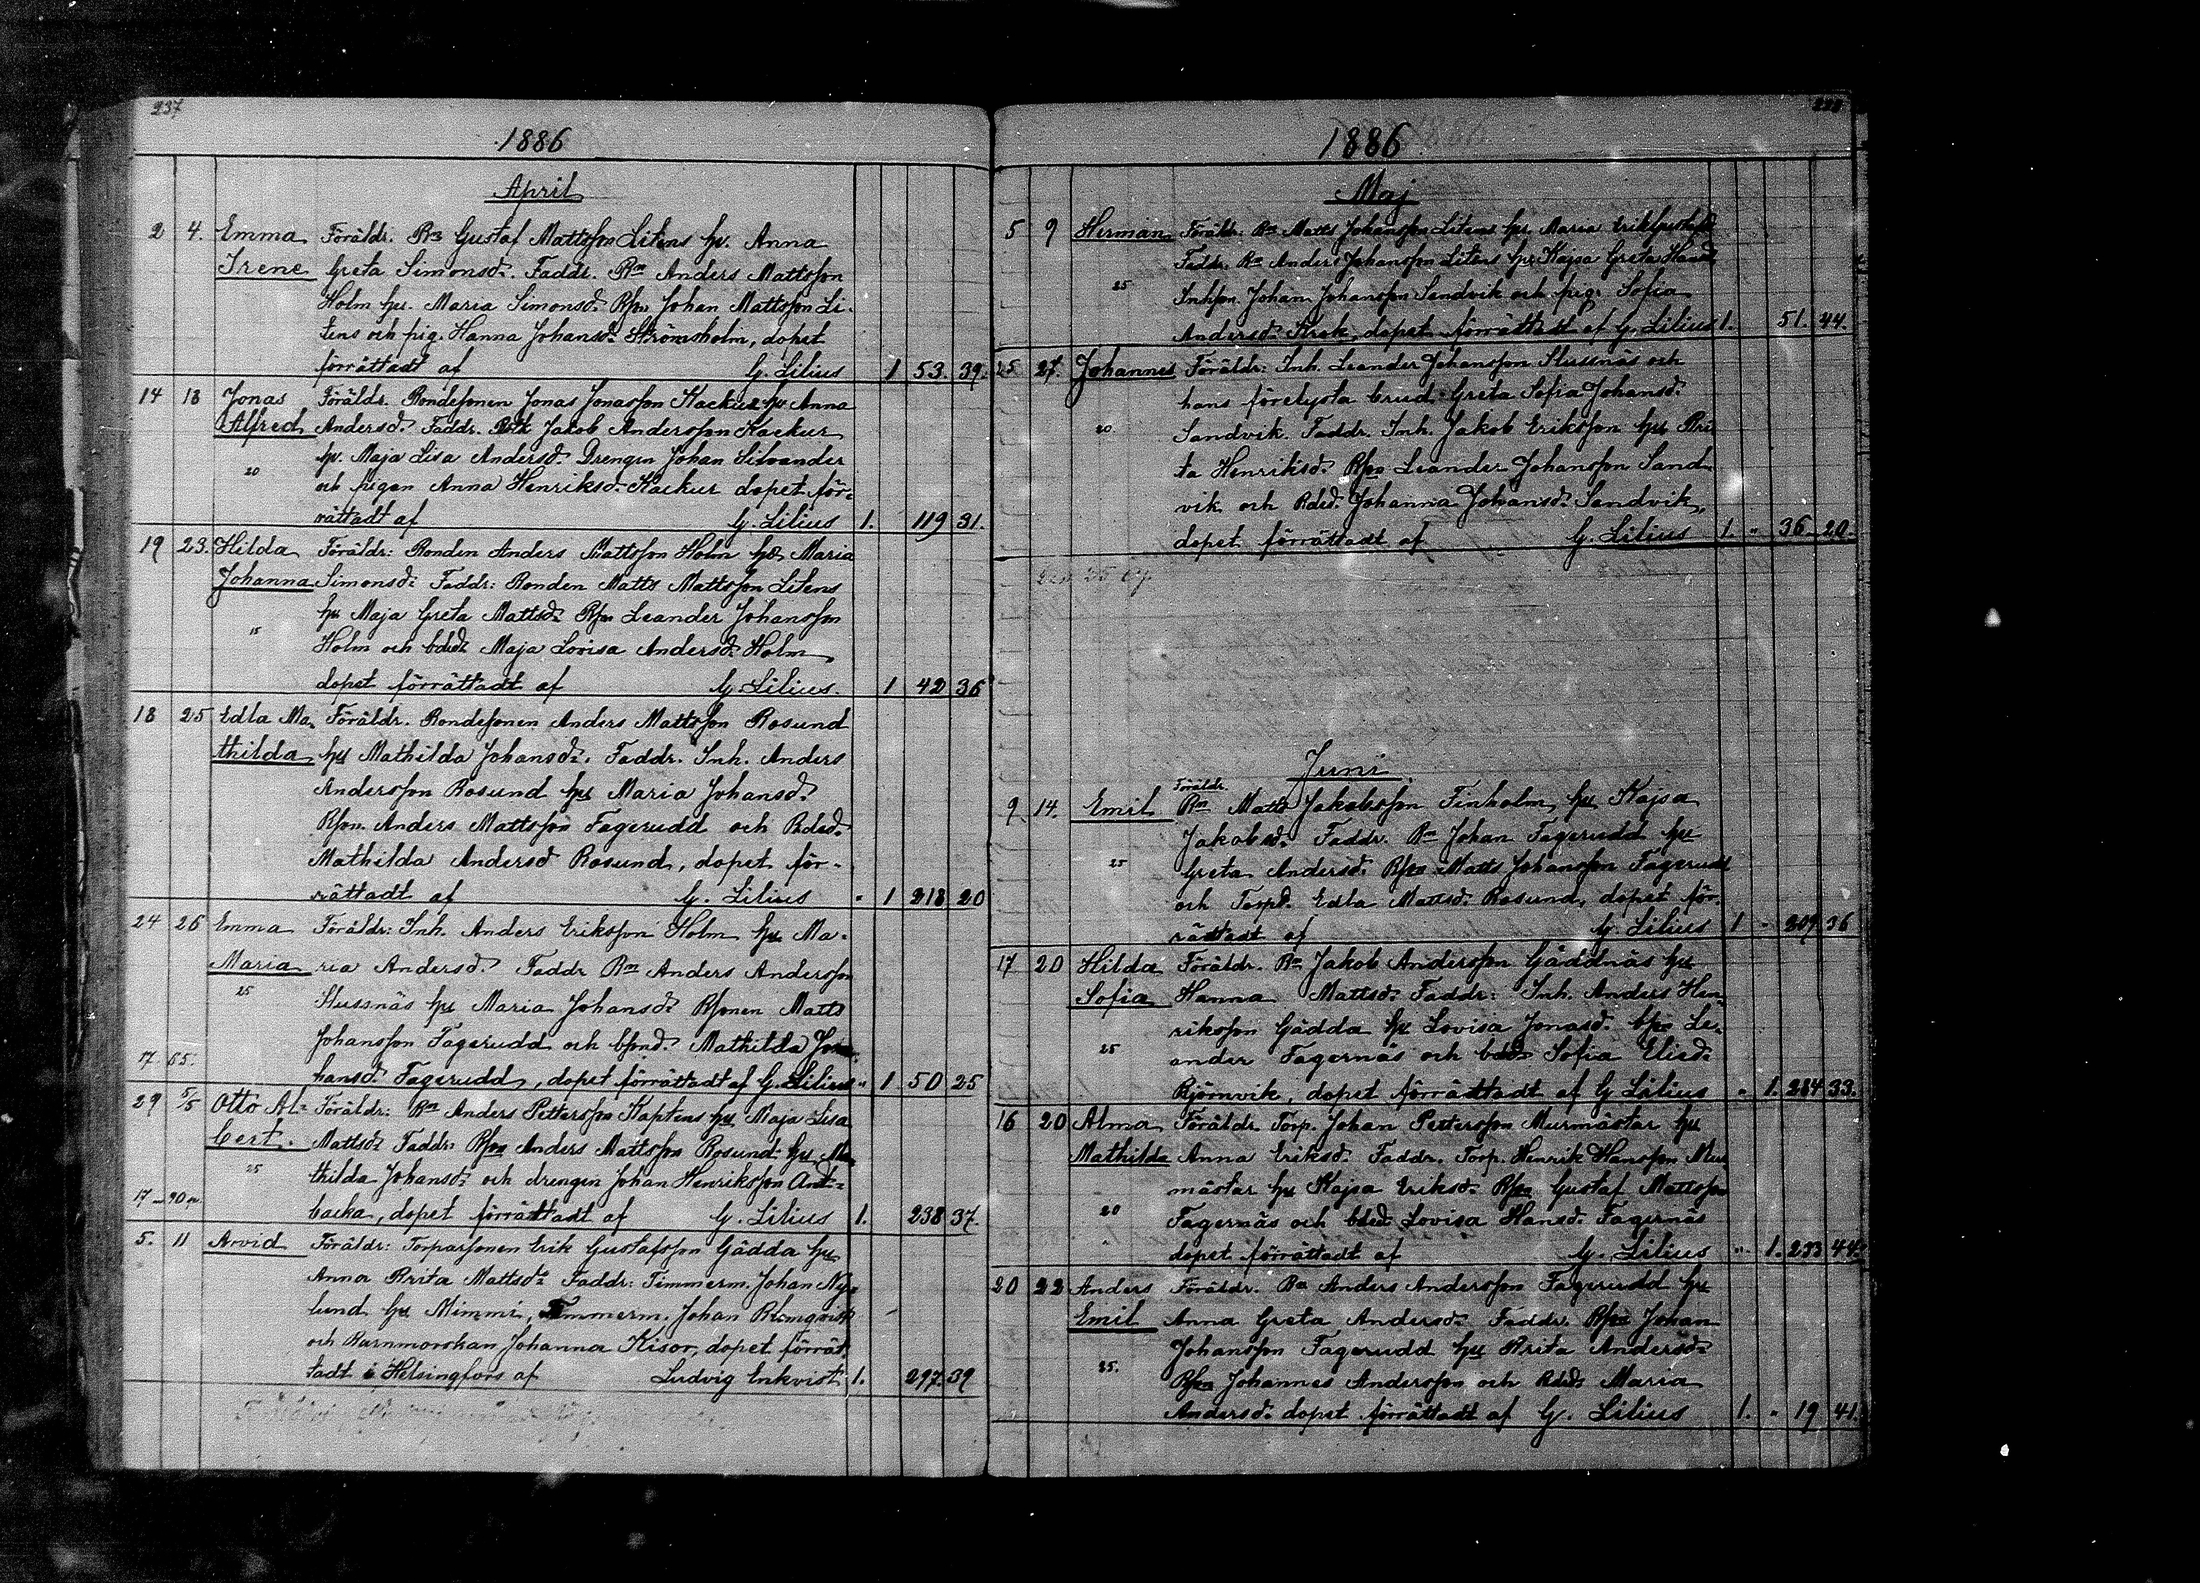 237
1886
April
2 4. Emma Föräldr. Bn Gustaf Mattsson Litens hu. Anna
Irene Greta Simonsd. Faddr. Bn Anders Mattsson
Holm hu. Maria Simonsd. Bson Johan Mattsson Li-
tens och pig. Hanna Johansd. Strömsholm, dopet
förrättadt af G. Lilius 1 53. 39.
14 18 Jonas Föräldr. Bondesonen Jonas Jonasson Kackur hu Anna
Alfred Andersd. Faddr. Jakob Andersson Kackur
hu. Maja Lisa Andersd. Drengen Johan Silvander
20 och pigan Anna Henriksd. Kackur dopet för-
rättadt af G. Lilius 1. 119 31.
19 23. Hilda Föräldr: Bonden Anders Mattsson Holm hu Maria
Johanna Simonsd: Faddr: Bonden Matts Mattsson Litens
hu Maja Greta Mattsd. Bson Leander Johansson
15 Holm och bdedr Maja Lovisa Andersd. Holm
dopet förrättadt af G. Lilius. 1 42 36
18 25 Edla Ma- Föräldr. Bondesonen Anders Mattsson Rosund
thilda hu Mathilda Johansd. Faddr. Inh. Anders
Andersson Rosund hu Maria Johansd.
Bson. Anders Mattsson Fagerudd och Bded.
Mathilda Andersd Rosund, dopet för-
rättadt af G. Lilius " 1 218 20
24 26 Emma Föräldr: Inh. Anders Eriksson Holm hu Ma-
Maria ria Andersd. Faddr Bn Anders Andersson
25 Slussnäs hu Maria Johansd. Bsonen Matts
Johansson Fagerudd och bond. Mathilda Jo-
17 85. hansd. Fagerudd, dopet förrättadt af G. Lilius " 1 50 25
29 5/5 Otto Al- Föräldr: Bn Anders Pettersson Kaptens hu Maja Lisa
bert. Mattsd. Faddr. Bson Anders Mattsson Rosund hu Ma-
25 thilda Johansd. och drengen Johan Henriksson Ant-
17-90 backa, dopet förrättadt af G. Lilius 1. 238 37.
5. 11 Arvid Föräldr: Torparsonen Erik Gustafsson Gädda hu
Anna Brita Mattsd. Faddr: Timmerm. Johan Ny-
lund hu Mimmi, Timmerm. Johan Blomqvist
och Barnmorskan Johanna Kisor, dopet förrät-
tadt i Helsingfors af Ludvig Enkvist 1. 297. 39
1886
Maj
5 9 Herman Föräldr. Bn Matts Johansson Litens hu Maria
Faddr. Bn Anders Johansson Litens hu Kajsa Greta
25 Inhson Johan Johansson Sandvik och pig. Sofia
Andersd. Krok, dopet förrättadt af G. Lilius 1. 51. 44.
25. 27. Johannes Föräldr: Inh. Leander Johansson Slussnäs och
hans förelysta brud Greta Sofia Johansd.
20 Sandvik. Faddr. Inh. Jakob Eriksson hu Bri
ta Henriksd. Bson Leander Johansson Sand
vik och Bded. Johanna Johansd. Sandvik,
dopet förrättadt af G. Lilius 1. " 36 20.
Juni
Föräldr.
9 14. Emil Bn Matts Jakobsson Finholm hu Kajsa
Jakobsd. Faddr. Bn Johan Fagerudd hu
25 Greta Andersd. Bson Matts Johansson Fagerudd
och Torpd. Edla Mattsd. Rosund, dopet för-
rättadt af G. Lilius 1 " 209 36
17 20 Hilda Föräldr. Bn Jakob Andersson Gäddnäs hu
Sofia Hanna Mattsd. Faddr: Inh. Anders Hen-
riksson Gädda hu Lovisa Jonasd. bson Le-
25 ander Fagernäs och bded Sofia Elisd.
Björnvik, dopet förrättadt af G Lilius " 1. 284 33.
16 20 Alma Föräldr. Torp. Johan Pettersson Murmästar hu
Mathilda Anna Eriksd. Faddr. Torp. Henrik Hansson Mur
mästar hu Kajsa Eriksd. Bson Gustaf Mattsson
20 Fagernäs och bded Lovisa Hansd. Fagernäs
dopet förrättadt af G. Lilius " 1. 233 44.
20 22 Anders Föräldr. Bn Anders Andersson Fagerudd hu
Emil Anna Greta Andersd. Faddr. Bson Johan
Johansson Fagerudd hu Brita Andersd.
25. Bson Johannes Andersson och Bded Maria
Andersd. dopet förrättadt af G. Lilius 1. " 19 41.